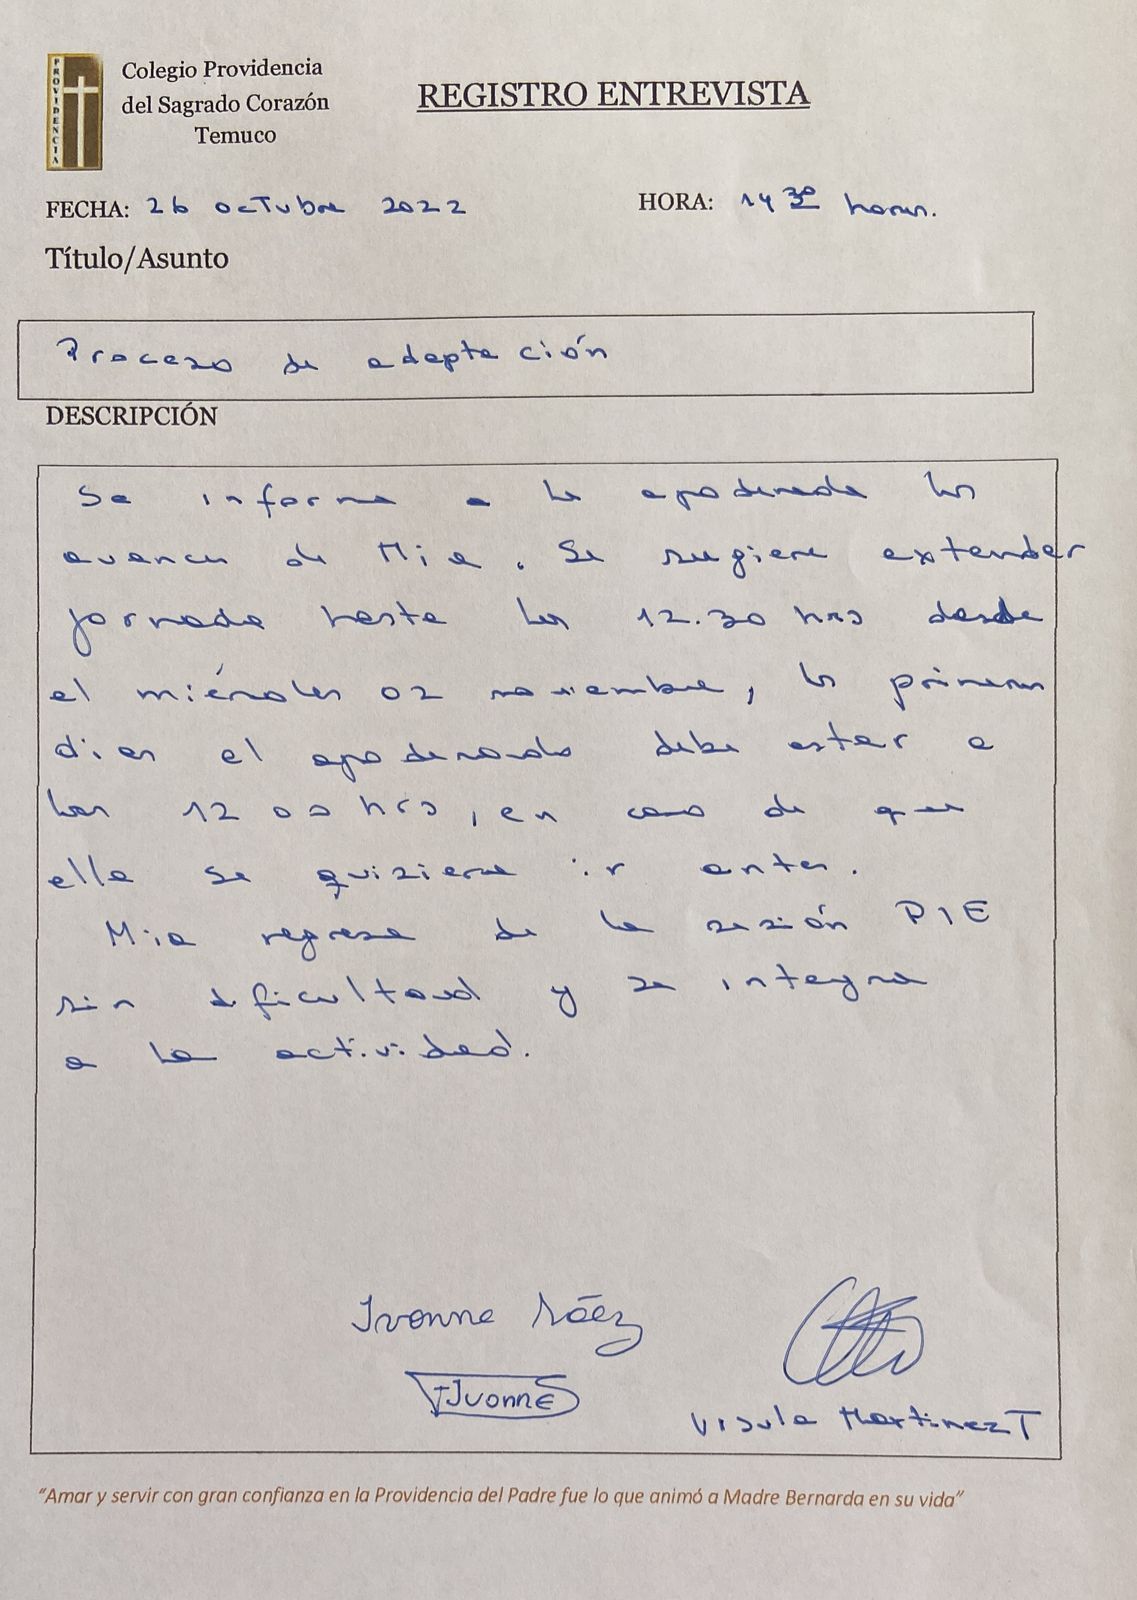 PROVIDENCIA
Colegio Providencia
del Sagrado Corazón
Temuco
REGISTRO ENTREVISTA
FECHA: 26 octubre 2022
HORA: 14 30 horas.
Título/Asunto
Proceso de adaptación
DESCRIPCIÓN
Se informa a la apoderada los
avances de Mia. Se sugiere extender
jornada hasta las 12.30 hrs desde
el miércoles 02 noviembre, los primeros
días el apoderado debe estar a
las 12 00 hrs, en caso de que
ella se quiziera ir antes.
Mia regresa de la sesión PIE
sin dificultad y se integra
a la actividad.
Ivonne Sáez
Ivonne S
Ursula Martinez T
"Amar y servir con gran confianza en la Providencia del Padre fue lo que animó a Madre Bernarda en su vida"